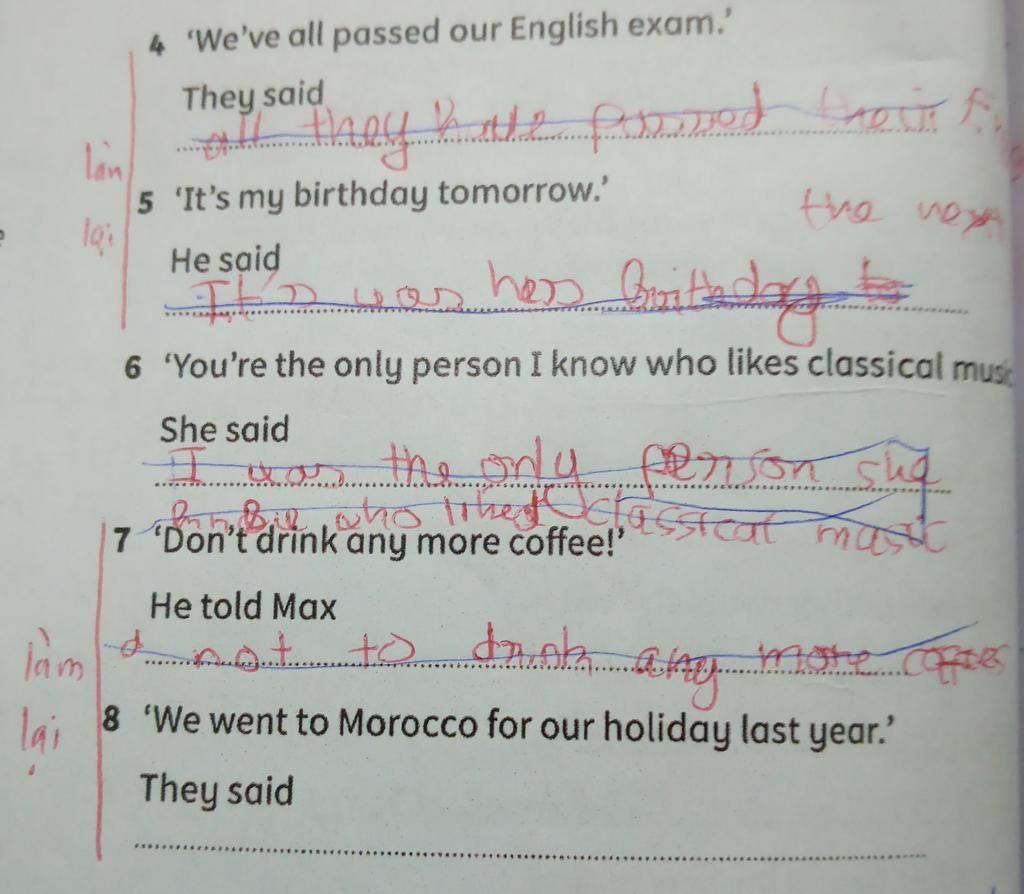 4 'We've all passed our English exam.'
They said
all they have passed their
làn
5 'It's my birthday tomorrow.'
the nex
lại
He said
It's was hers birthday
6 'You're the only person I know who likes classical musi
She said
I was the only person she
who liked classical music
7 'Don't drink any more coffee!'
He told Max
not to drink any more coffee
làm
8 'We went to Morocco for our holiday last year.'
lại
They said